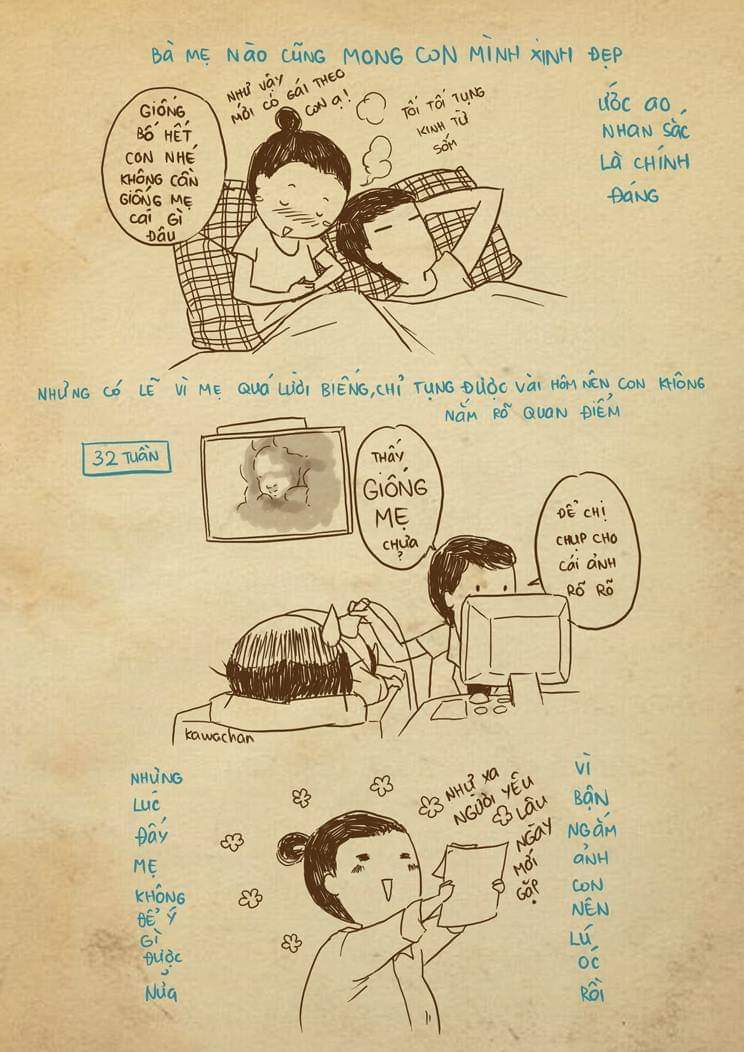 BÀ MẸ NÀO CŨNG MONG CON MÌNH XINH ĐẸP
ƯỚC AO
NHAN SẮC
LÀ CHÍNH
ĐÁNG
GIỐNG
BỐ HẾT
CON NHÉ
KHÔNG CẦN
GIỐNG MẸ
CÁI GÌ
ĐÂU
NHƯ VẬY
MỚI CÓ GÁI THEO
CON Ạ!
TỐI TỐI TỤNG
KINH TỪ
SỚM
NHƯNG CÓ LẼ VÌ MẸ QUÁ LƯỜI BIẾNG, CHỈ TỤNG ĐƯỢC VÀI HÔM NÊN CON KHÔNG
NẮM RÕ QUAN ĐIỂM
32 TUẦN
THẤY
GIỐNG
MẸ
CHƯA?
ĐỂ CHỊ
CHỤP CHO
CÁI ẢNH
RÕ RÕ
kawachan
NHƯNG
LÚC
ĐẤY
MẸ
KHÔNG
ĐỂ Ý
GÌ
ĐƯỢC
NỮA
NHƯ XA
NGƯỜI YÊU
LÂU
NGÀY
MỚI
GẶP
VÌ
BẬN
NGẮM
ẢNH
CON
NÊN
LÚ
ÓC
RỒI